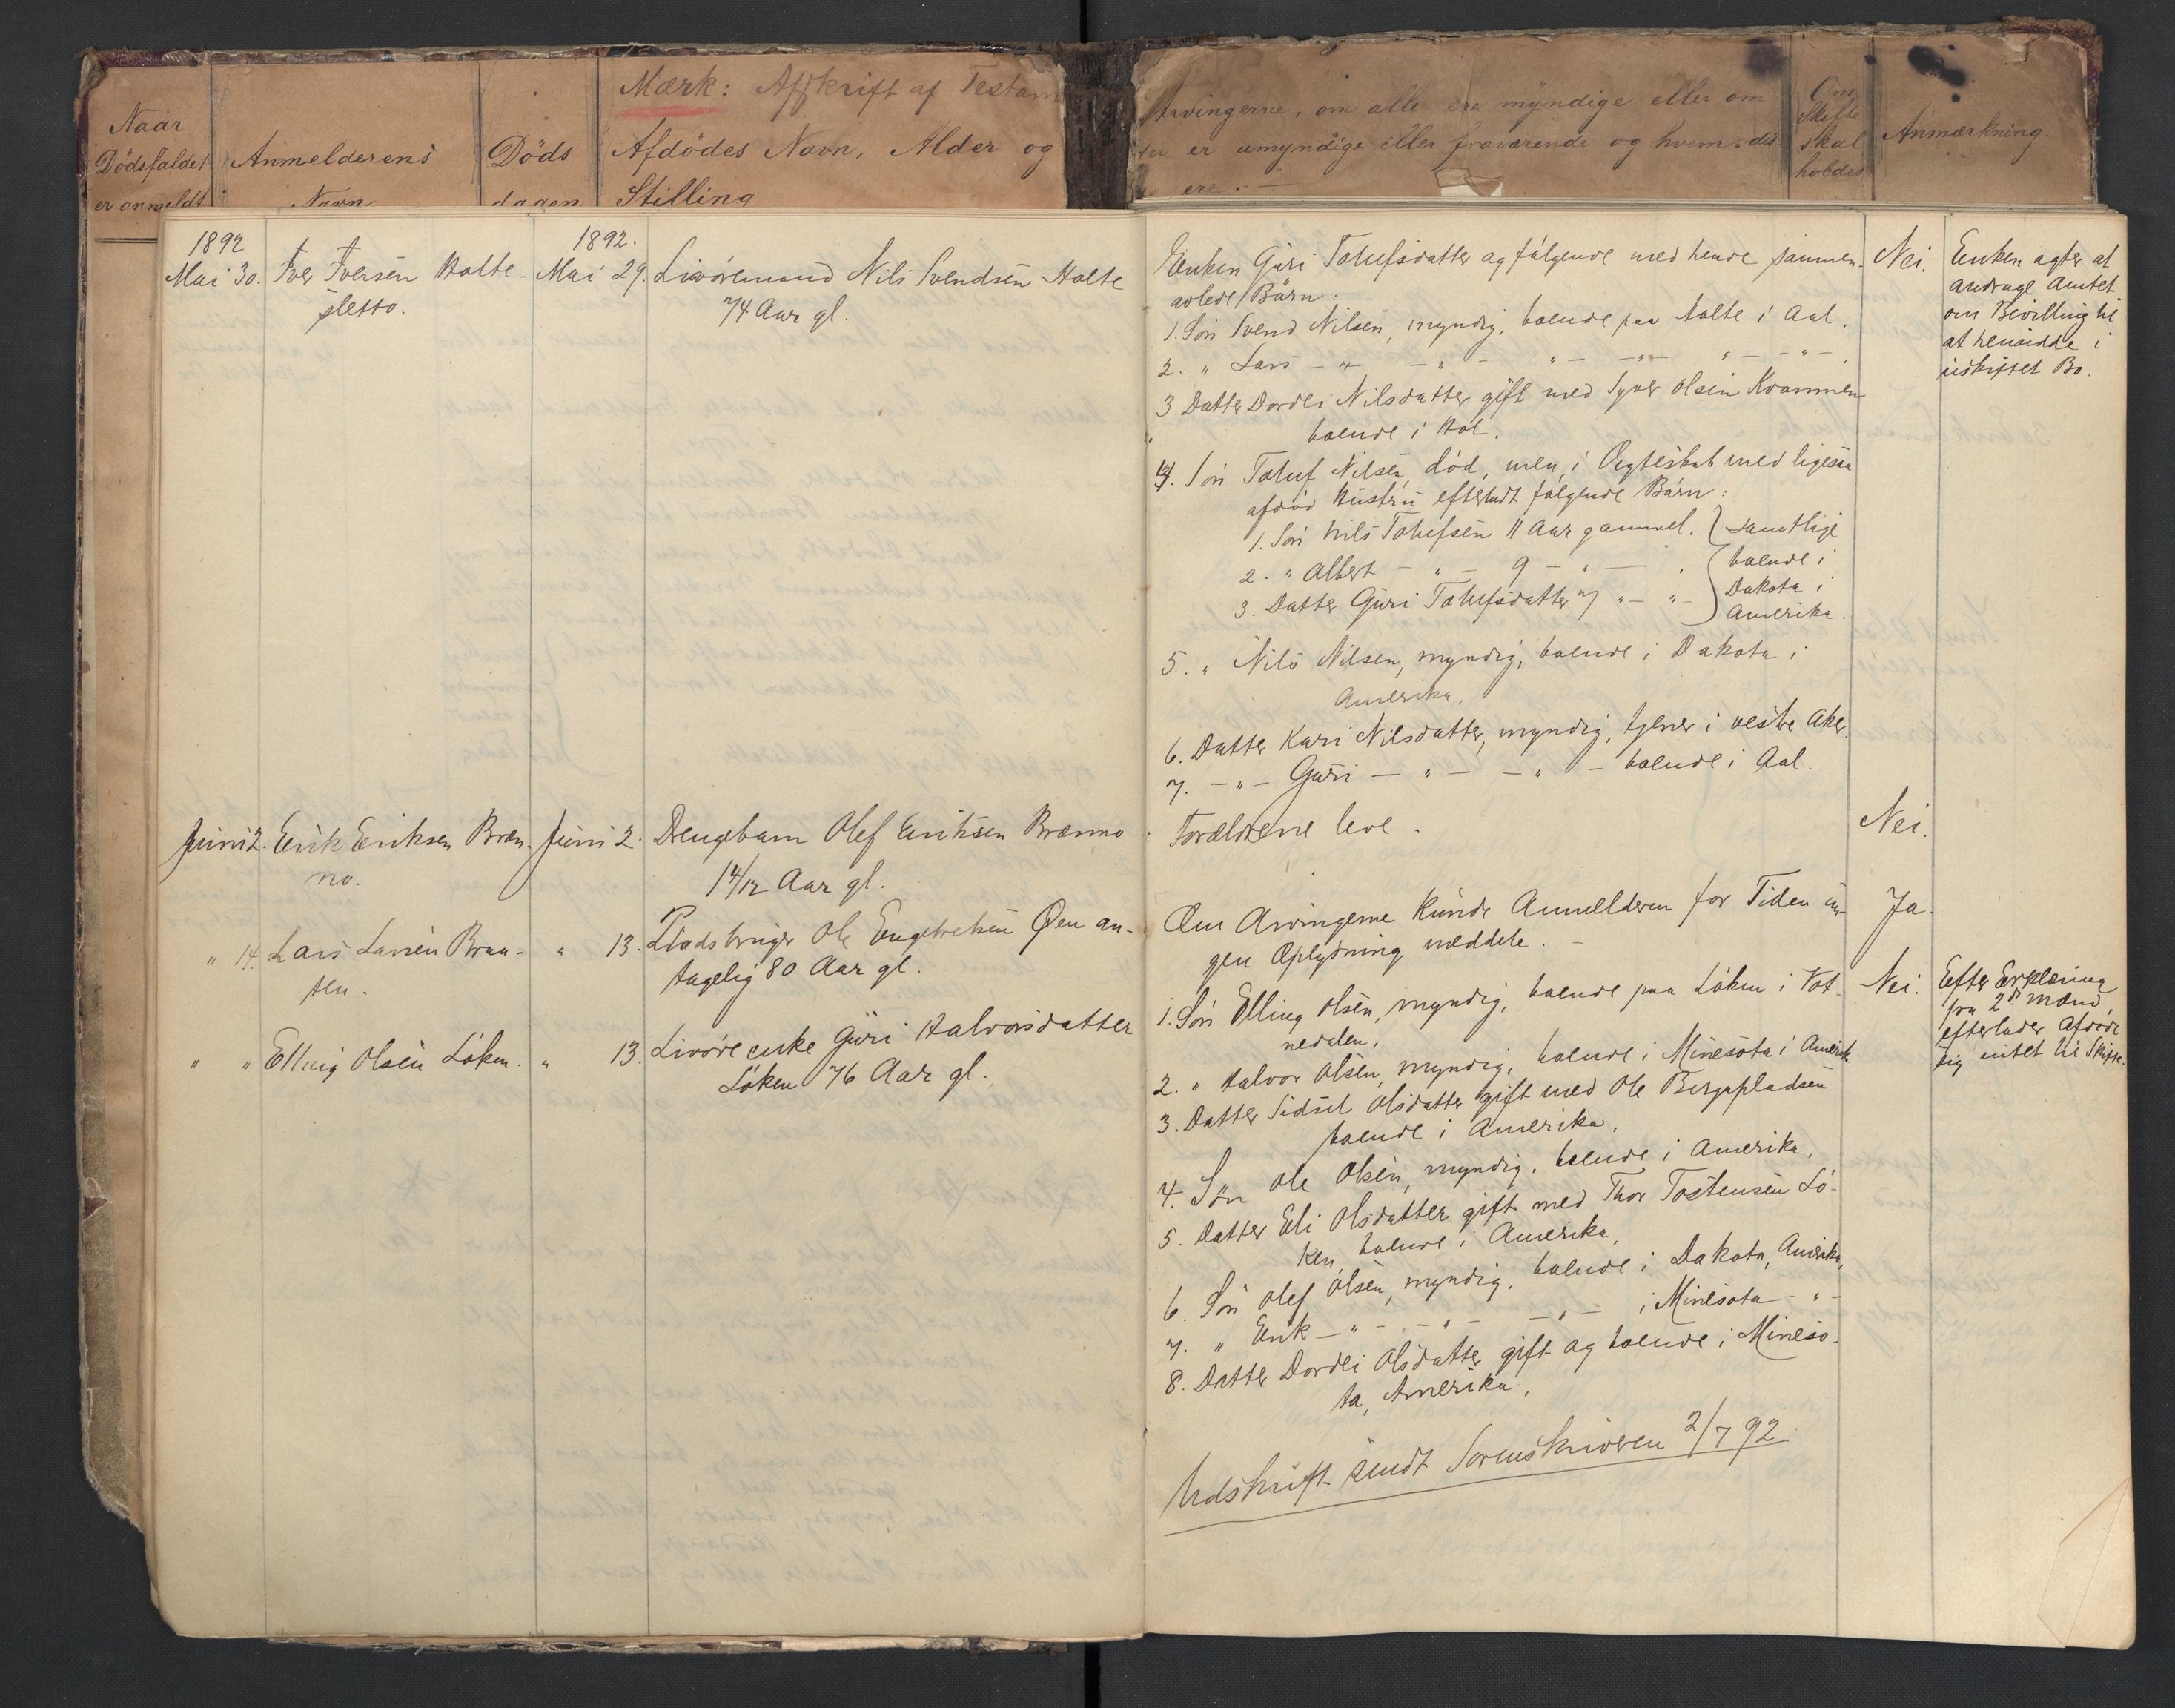 Mærk: Afskrift af Testam
Naar
Dödsfaldet
er anmeldt
Anmelderens
Navn
Döds
dagen
Afdödes Navn, Alder og
Stilling
Arvingerne, om alle ere myndige eller om
er umyndige eller fraværende og hvem dis-
ere.
Om
Skifte
skal
holdes
Anmærkning.
1892
Mai 30. Iver Iversen Holte-
sletto.
1892.
Mai 29. Livöremand Nils Svendsen Holte
74 Aar gl.
Enken Guri Tolufsdatter og fölgende med hende sammen-
avlede Börn:
1. Sön Svend Nilsen, myndig, boende paa Holte i Aal.
2. " Lars - " - - " - " - - " - " - - " - .
3. Datter Dordei Nilsdatter gift med Syver Olsen Kvammen
boende i Hol.
4. Sön Toluf Nilsen, död, men i Ægteskab med ligesaa
afdöd Hustru efterladt fölgende Börn:
1. Sön Nils Tolufsen 11 Aar gammel. } samtlige
2. " Albert - " - 9 - " - . boende i
3. Datter Guri Tolufsdatter 7 " - " - Dakota i
Amerika.
5. " Nils Nilsen, myndig, boende i Dakota i
Amerika.
6. Datter Kari Nilsdatter, myndig, tjener i vestre Aker.
7. - " - Guri - " - - " - boende i Aal.
Nei.
Enken agter at
andrage Amtet
om Bevilling til
at hensidde i
uskiftet Bo.
Juni 2. Erik Eriksen Bræn-
no.
Juni 2. Drengebarn Olef Eriksen Brænno
1 4/12 Aar gl.
Forældrene leve.
Nei.
" 14. Lars Larsen Braa-
ten.
" 13. Pladsbruger Ole Engebretsen Öen an-
tagelig 80 Aar gl.
Om Arvingerne kunde Anmelderen for Tiden in-
gen Oplysning meddele. -
Ja.
" " Elling Olsen Löken.
" 13. Livöreenke Guri Halvorsdatter
Löken 76 Aar gl.
1. Sön Elling Olsen, myndig, boende paa Löken i Vot-
nedalen.
2. " Halvor Olsen, myndig, boende i Minesota i Amerik.
3. Datter Sidsel Olsdatter gift med Ole Bergepladsen
boende i Amerika.
4. Sön Ole Olsen, myndig, boende i Amerika.
5. Datter Eli Olsdatter gift med Thor Tostensen Lö-
ken, boende i Amerika.
6. Sön Olef Olsen, myndig, boende i Dakota, Amerika,
7. " Erik - " - - " - - " - i Minesota - " -
8. Datter Dordei Olsdatter gift og boende i Mineso-
ta, Amerika.
Nei.
Efter Erklæring
fra 2de Mænd,
efterlader Afdöde
sig intet til Skifte.
Udskrift sendt Sorenskriveren 2/7 92.